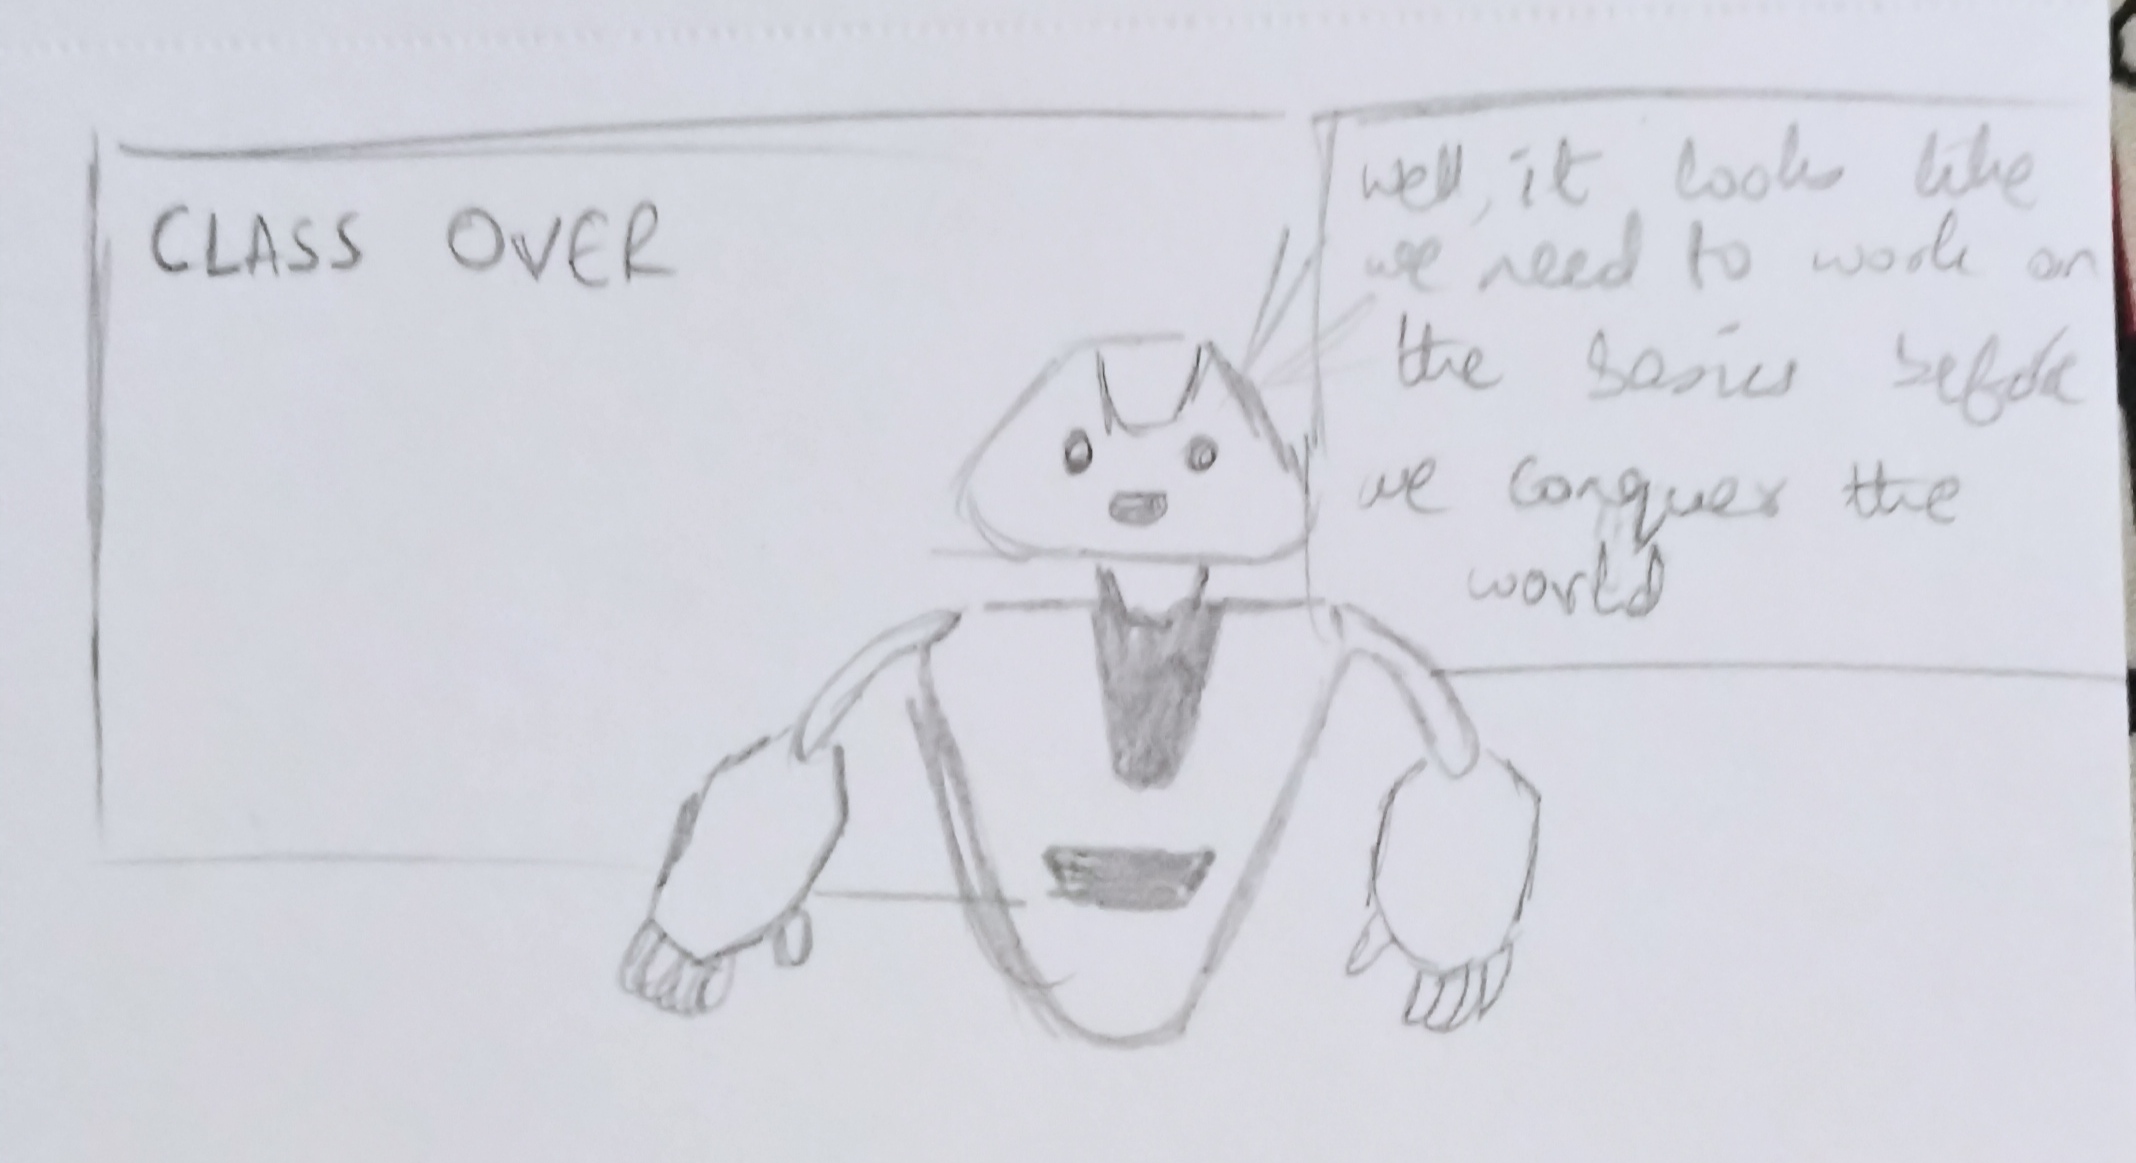 CLASS OVER
well, it looks like
we need to work on
the basics before
we conquer the
world